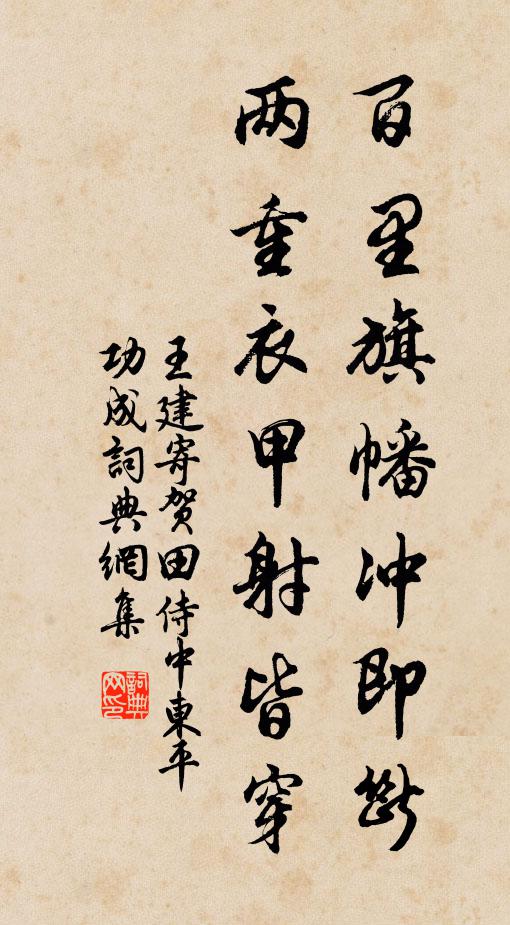 百里旗幡冲即断
两重衣甲射皆穿
王建寄贺田侍中東平
功成詞典網集
詞典
网印